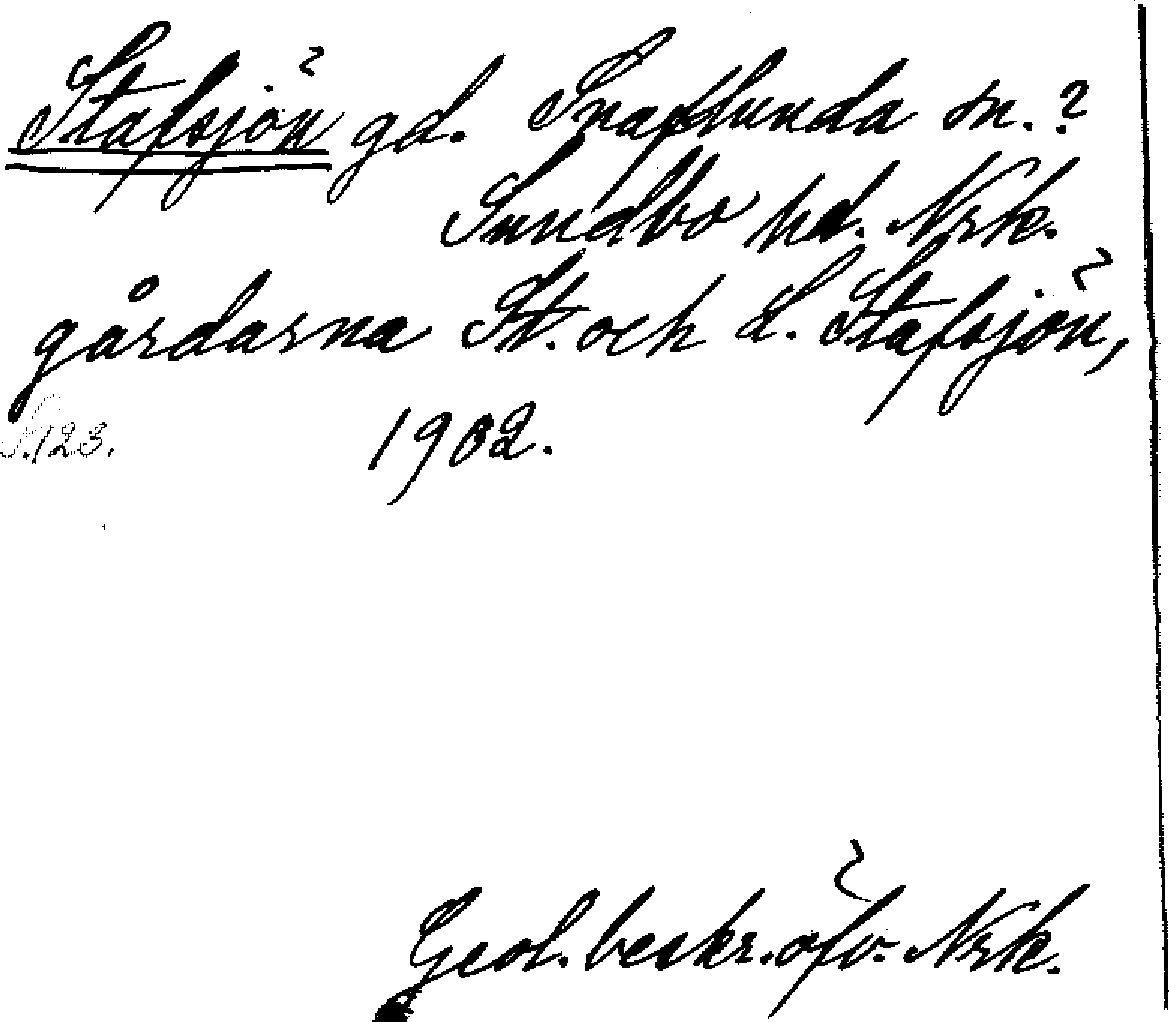 Stafsjön gd. Snaflunda sn.?
Sundbo hd. Nrk.
gårdarna St. och L. Stafsjön,
S. 123. 1902.
Geol. beskr. öfv. Nrk.